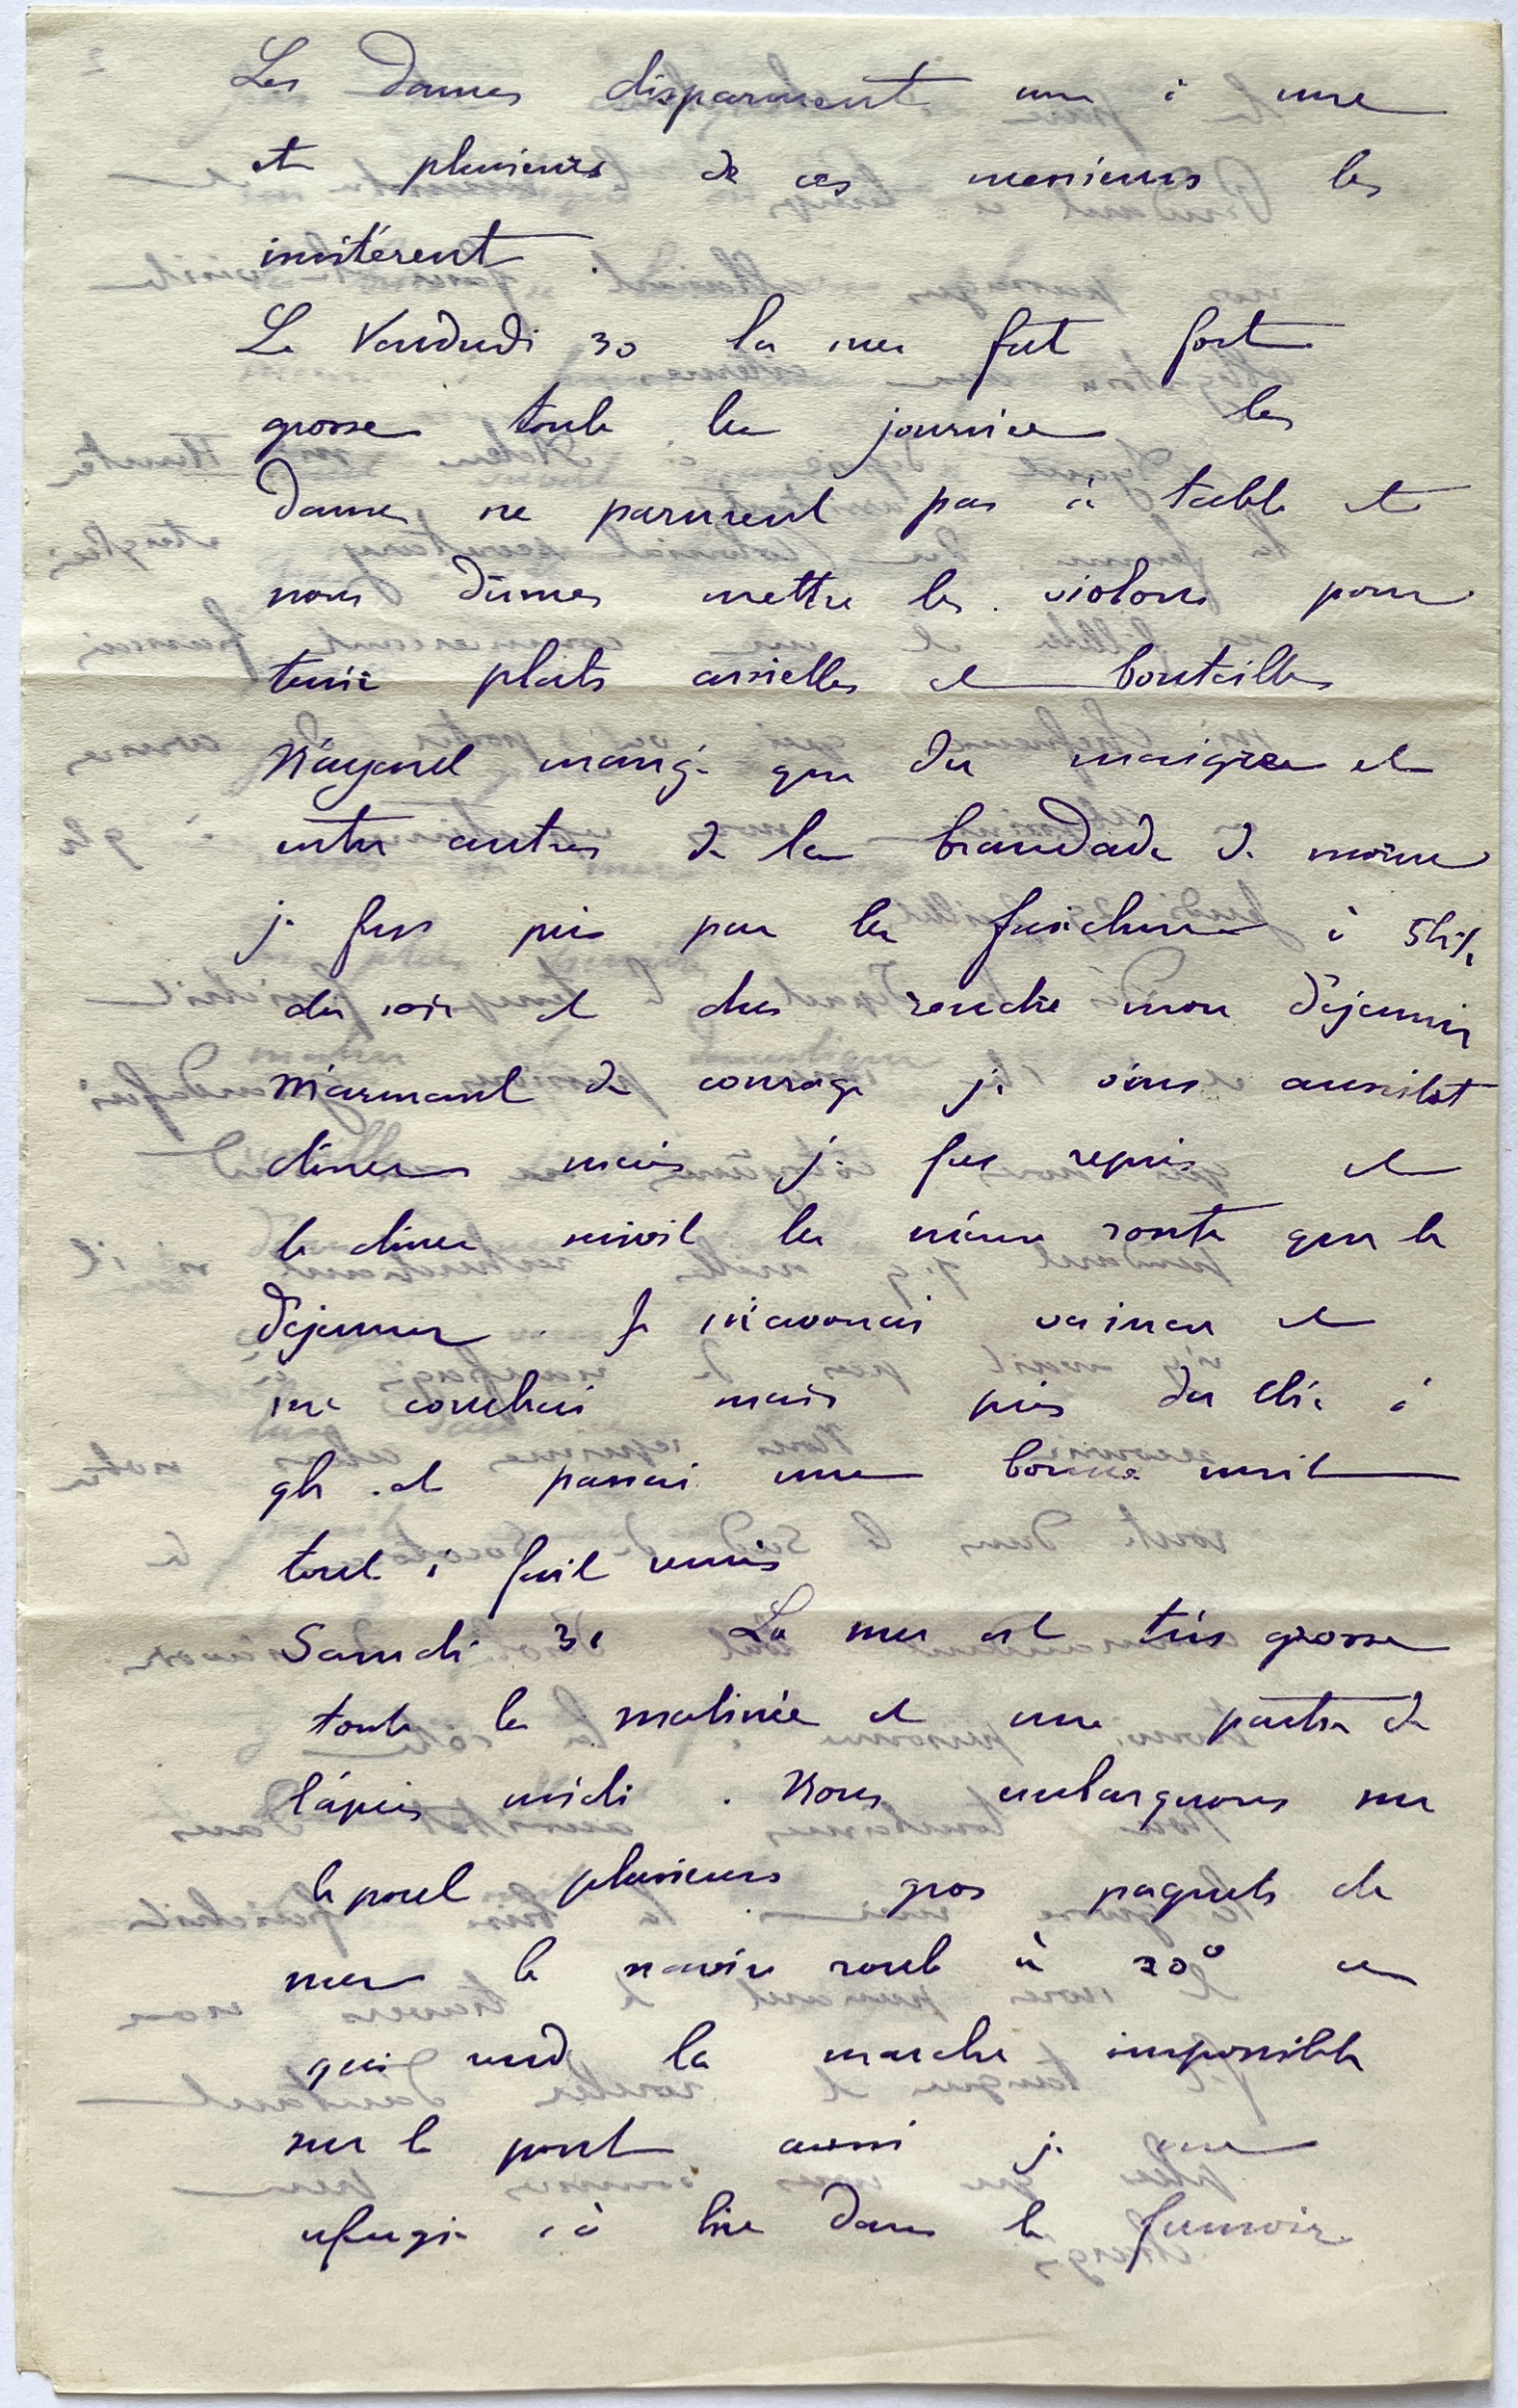 Les Dames disparurent une à une
et plusieurs de ces messieurs les
imitèrent.
Le Vendredi 30 la mer fut fort
grosse toute la journée les
Dames ne parurent pas à table et
nous dûmes mettre les violons pour
tenir plats assiettes et bouteilles
N'ayant mangé que du maigre et
entre autres de la brandade de morue
je fus pris par la fraicheur à 5h½
du soir et dus rendre mon déjeuner
M'armant de courage je vins aussitot
diner mais je fus repris et
le diner suivit la même route que le
déjeuner. Je m'avouai vaincu et
me couchai mais pris du thé à
9h et passai une bonne nuit
tout à fait remis
Samedi 31 La mer est très grosse
toute la matinée et une partie de
l'après midi. Nous embarquons sur
le pont plusieurs gros paquets de
mer le navire roule à 20° ce
qui rend la marche impossible
sur le pont aussi je me
réfugie à lire dans le fumoir.